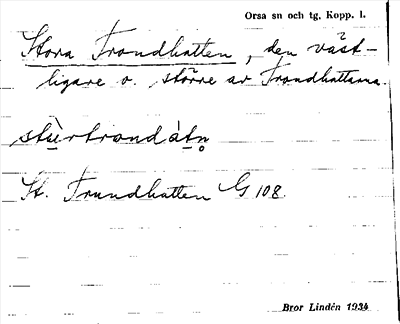 Orsa sn och tg, Kopp. l.
Stora Trondhatten, den väst-
ligare o. större av Trondhattarna.
stùrtrondátn̥
St. Trundhatten G 108
Bror Lindén 1934